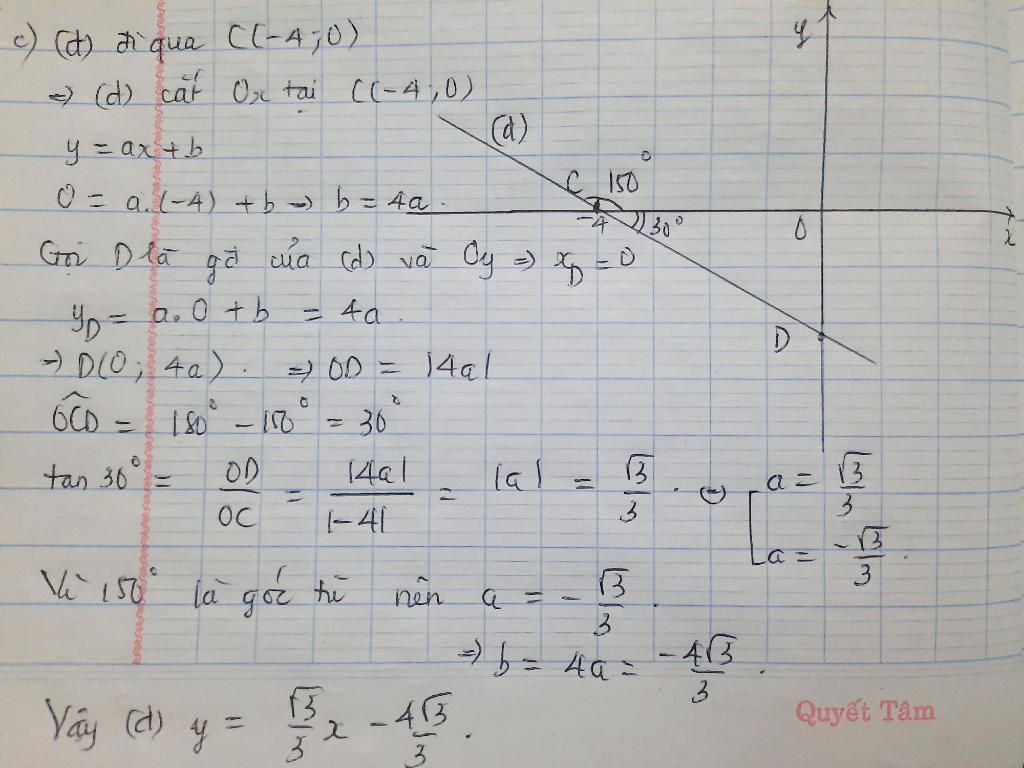 c) (d) đi qua C(-4;0)
⇒ (d) cắt Ox tại C(-4;0)
y = ax+b
0 = a.(-4) + b ⇒ b = 4a.
Gọi D là gđ của (d) và Oy ⇒ x_D = 0
y_D = a.0 + b = 4a.
⇒ D(0; 4a). ⇒ OD = |4a|
\widehat{OCD} = 180° - 150° = 30°
tan 30° = \frac{OD}{OC} = \frac{|4a|}{|-4|} = |a| = \frac{√3}{3}. ⇔ [ a = \frac{√3}{3}
a = \frac{-√3}{3}.
Vì 150° là góc tù nên a = -\frac{√3}{3}.
⇒ b = 4a = \frac{-4√3}{3}.
Vậy (d) y = \frac{√3}{3}x - \frac{4√3}{3}.
y
(d)
C 150°
-4 30° O x
D
Quyết Tâm